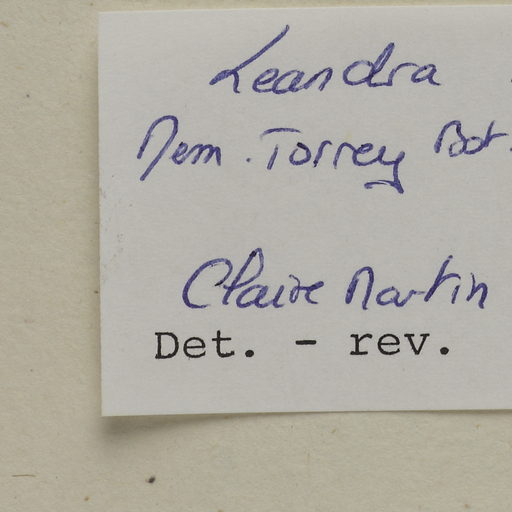 Leandra
Mem. Torrey Bot.
Claire Martin
Det. - rev.